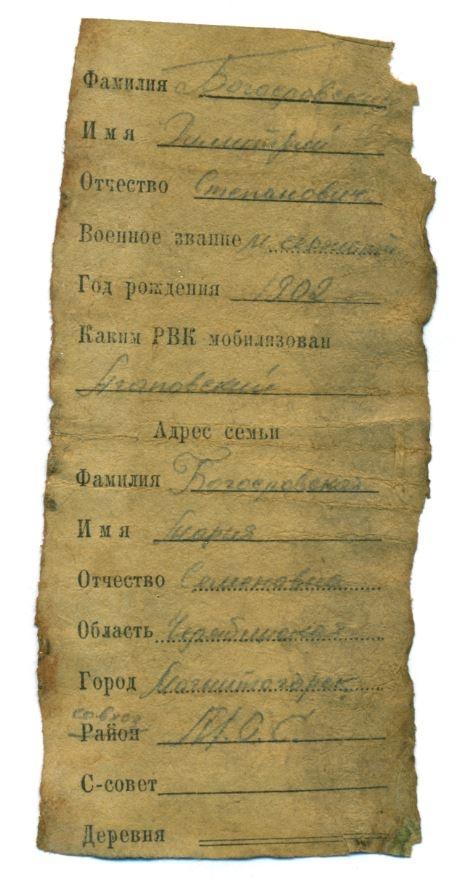 Фамилия Богословский
Имя Димитрий
Отчество Степанович
Военное звание м. сержант
Год рождения 1902
Каким РВК мобилизован
Агаповский
Адрес семьи
Фамилия Богословская
Имя Мария
Отчество Семеновна
Область Челябинская
Город Магнитогорск
совхоз
Район М.О.С.
С-совет
Деревня